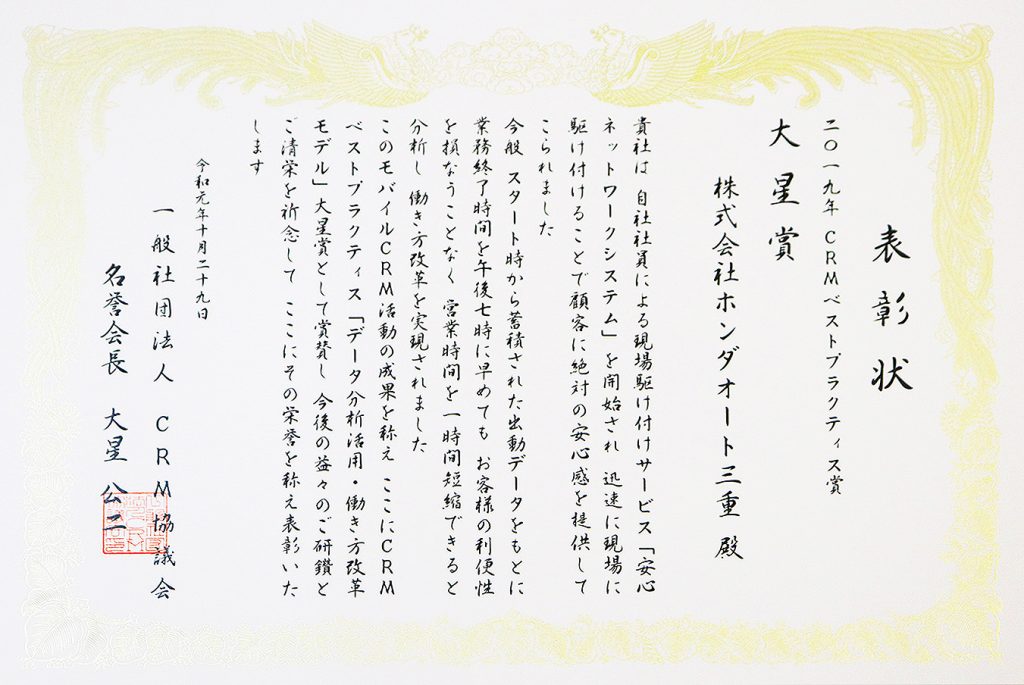 表彰状
二〇一九年 CRMベストプラクティス賞
大星賞
株式会社ホンダオート三重 殿
貴社は 自社社員による現場駆け付けサービス「安心
ネットワークシステム」を開始され 迅速に現場に
駆け付けることで顧客に絶対の安心感を提供して
こられました
今般 スタート時から蓄積された出動データをもとに
業務終了時間を午後七時に早めても お客様の利便性
を損なうことなく 営業時間を一時間短縮できると
分析し 働き方改革を実現されました
このモバイルCRM活動の成果を称え ここにCRM
ベストプラクティス「データ分析活用・働き方改革
モデル」大星賞として賞賛し 今後の益々のご研鑽と
ご清栄を祈念して ここにその栄誉を称え表彰いた
します
令和元年十月二十九日
一般社団法人 CRM協議会
名誉会長 大星 公二